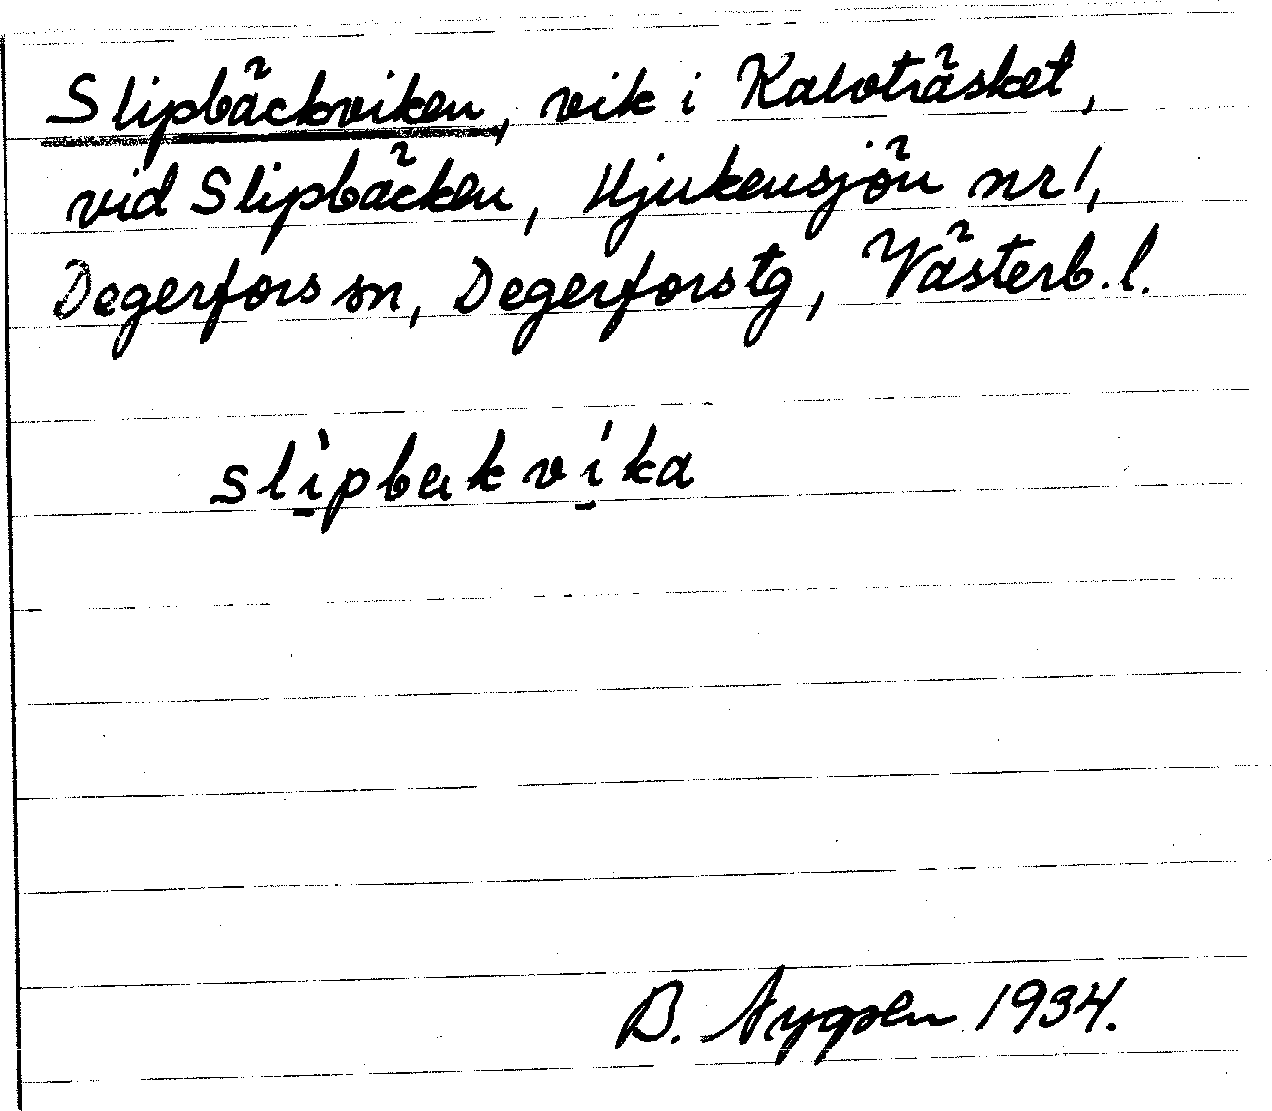 Slipbäckviken, vik i Kalvträsket,
vid Slipbäcken, Hjukensjön nr 1,
Degerfors sn, Degerfors tg, Västerb. l.
slipbakvika
B. 1934.